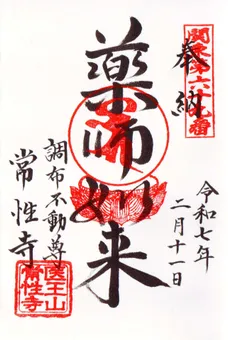 奉納
薬師如来
調布不動尊
常性寺
令和七年
二月十一日
医王山
常性寺